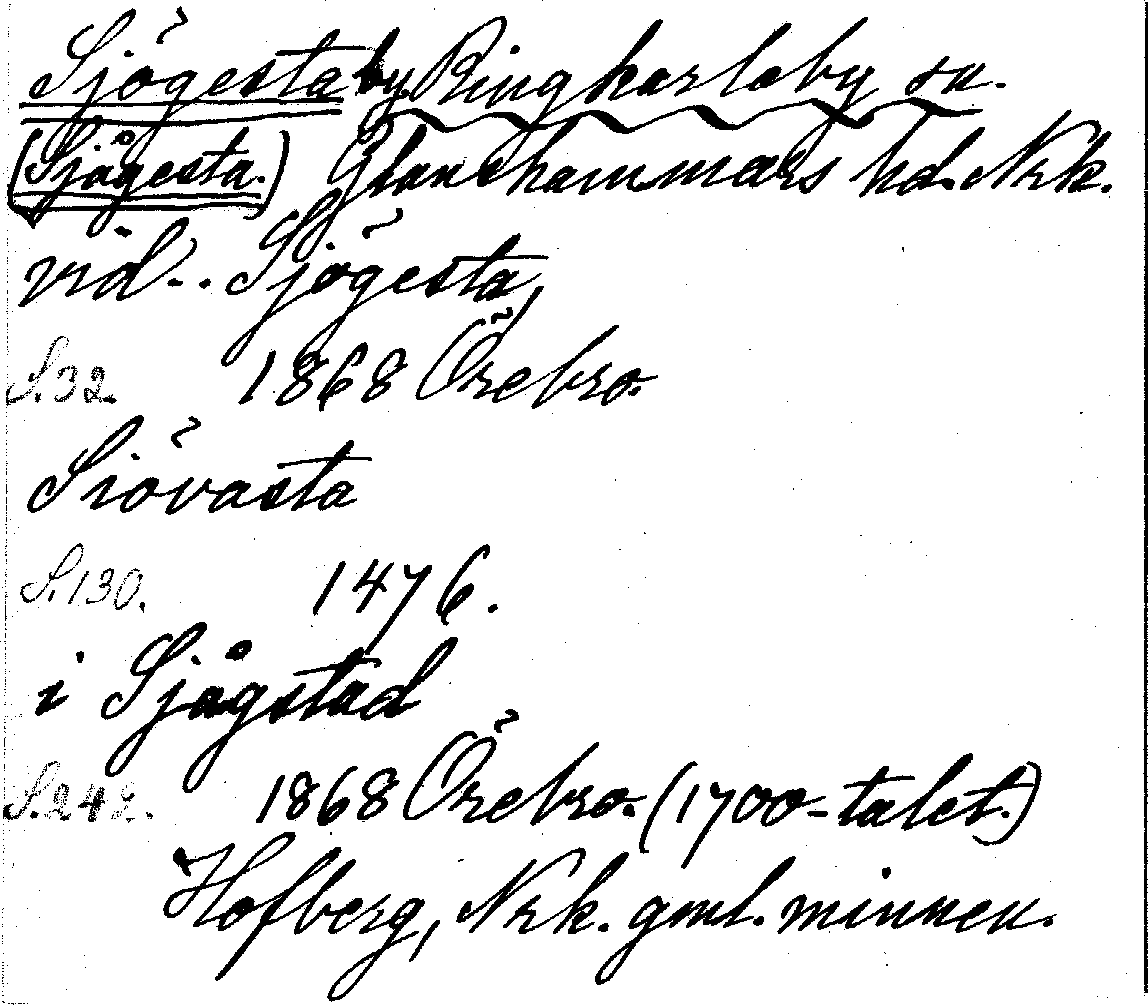 Sjögesta by Ringkarleby sn.
(Sjågesta.) Glanshammars hd. Nrk.
vid.. Sjögesta,
S.32. 1868 Örebro.
Siövasta
S.130. 1476.
i Sjågstad
S.242. 1868 Örebro. (1700-talet.)
Hofberg, Nrk. gml. minnen.